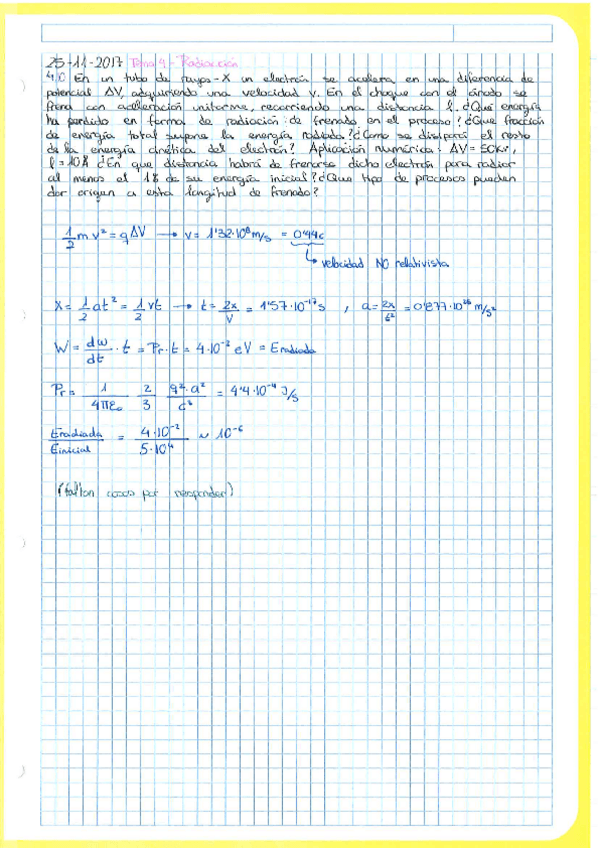 25-11-2017 Tema 9 - Radiación
4.0 En un tubo de rayos-X un electrón se acelera en una diferencia de
potencial ΔV, adquiriendo una velocidad v. En el choque con el ánodo se
frena con aceleración uniforme, recorriendo una distancia l. ¿Qué energía
ha perdido en forma de radiación de frenado en el proceso? ¿Qué fracción
de energía total supone la energía radiada? ¿Cómo se disipará el resto
de la energía cinética del electrón? Aplicación numérica: ΔV = 50Kv,
l = 10Å ¿En que distancia habrá de frenarse dicho electrón para radiar
al menos el 1% de su energía inicial? ¿Que tipo de procesos pueden
dar origen a esta longitud de frenado?
1/2 m v² = q ΔV → v = 1'32·10⁸ m/s = 0'44c
↳ velocidad NO relativista
X = 1/2 at² = 1/2 vt → t = 2x/v = 1'57·10⁻¹⁷ s , a = 2x/t² = 0'877·10²⁵ m/s²
W = dw/dt · t = Pr·t = 4·10⁻² eV = Eradiada
Pr = 1/4πε₀ 2/3 q²·a²/c³ = 4'4·10⁻⁴ J/s
Eradiada/Einicial = 4·10⁻²/5·10⁴ ~ 10⁻⁶
(faltan cosas por responder)